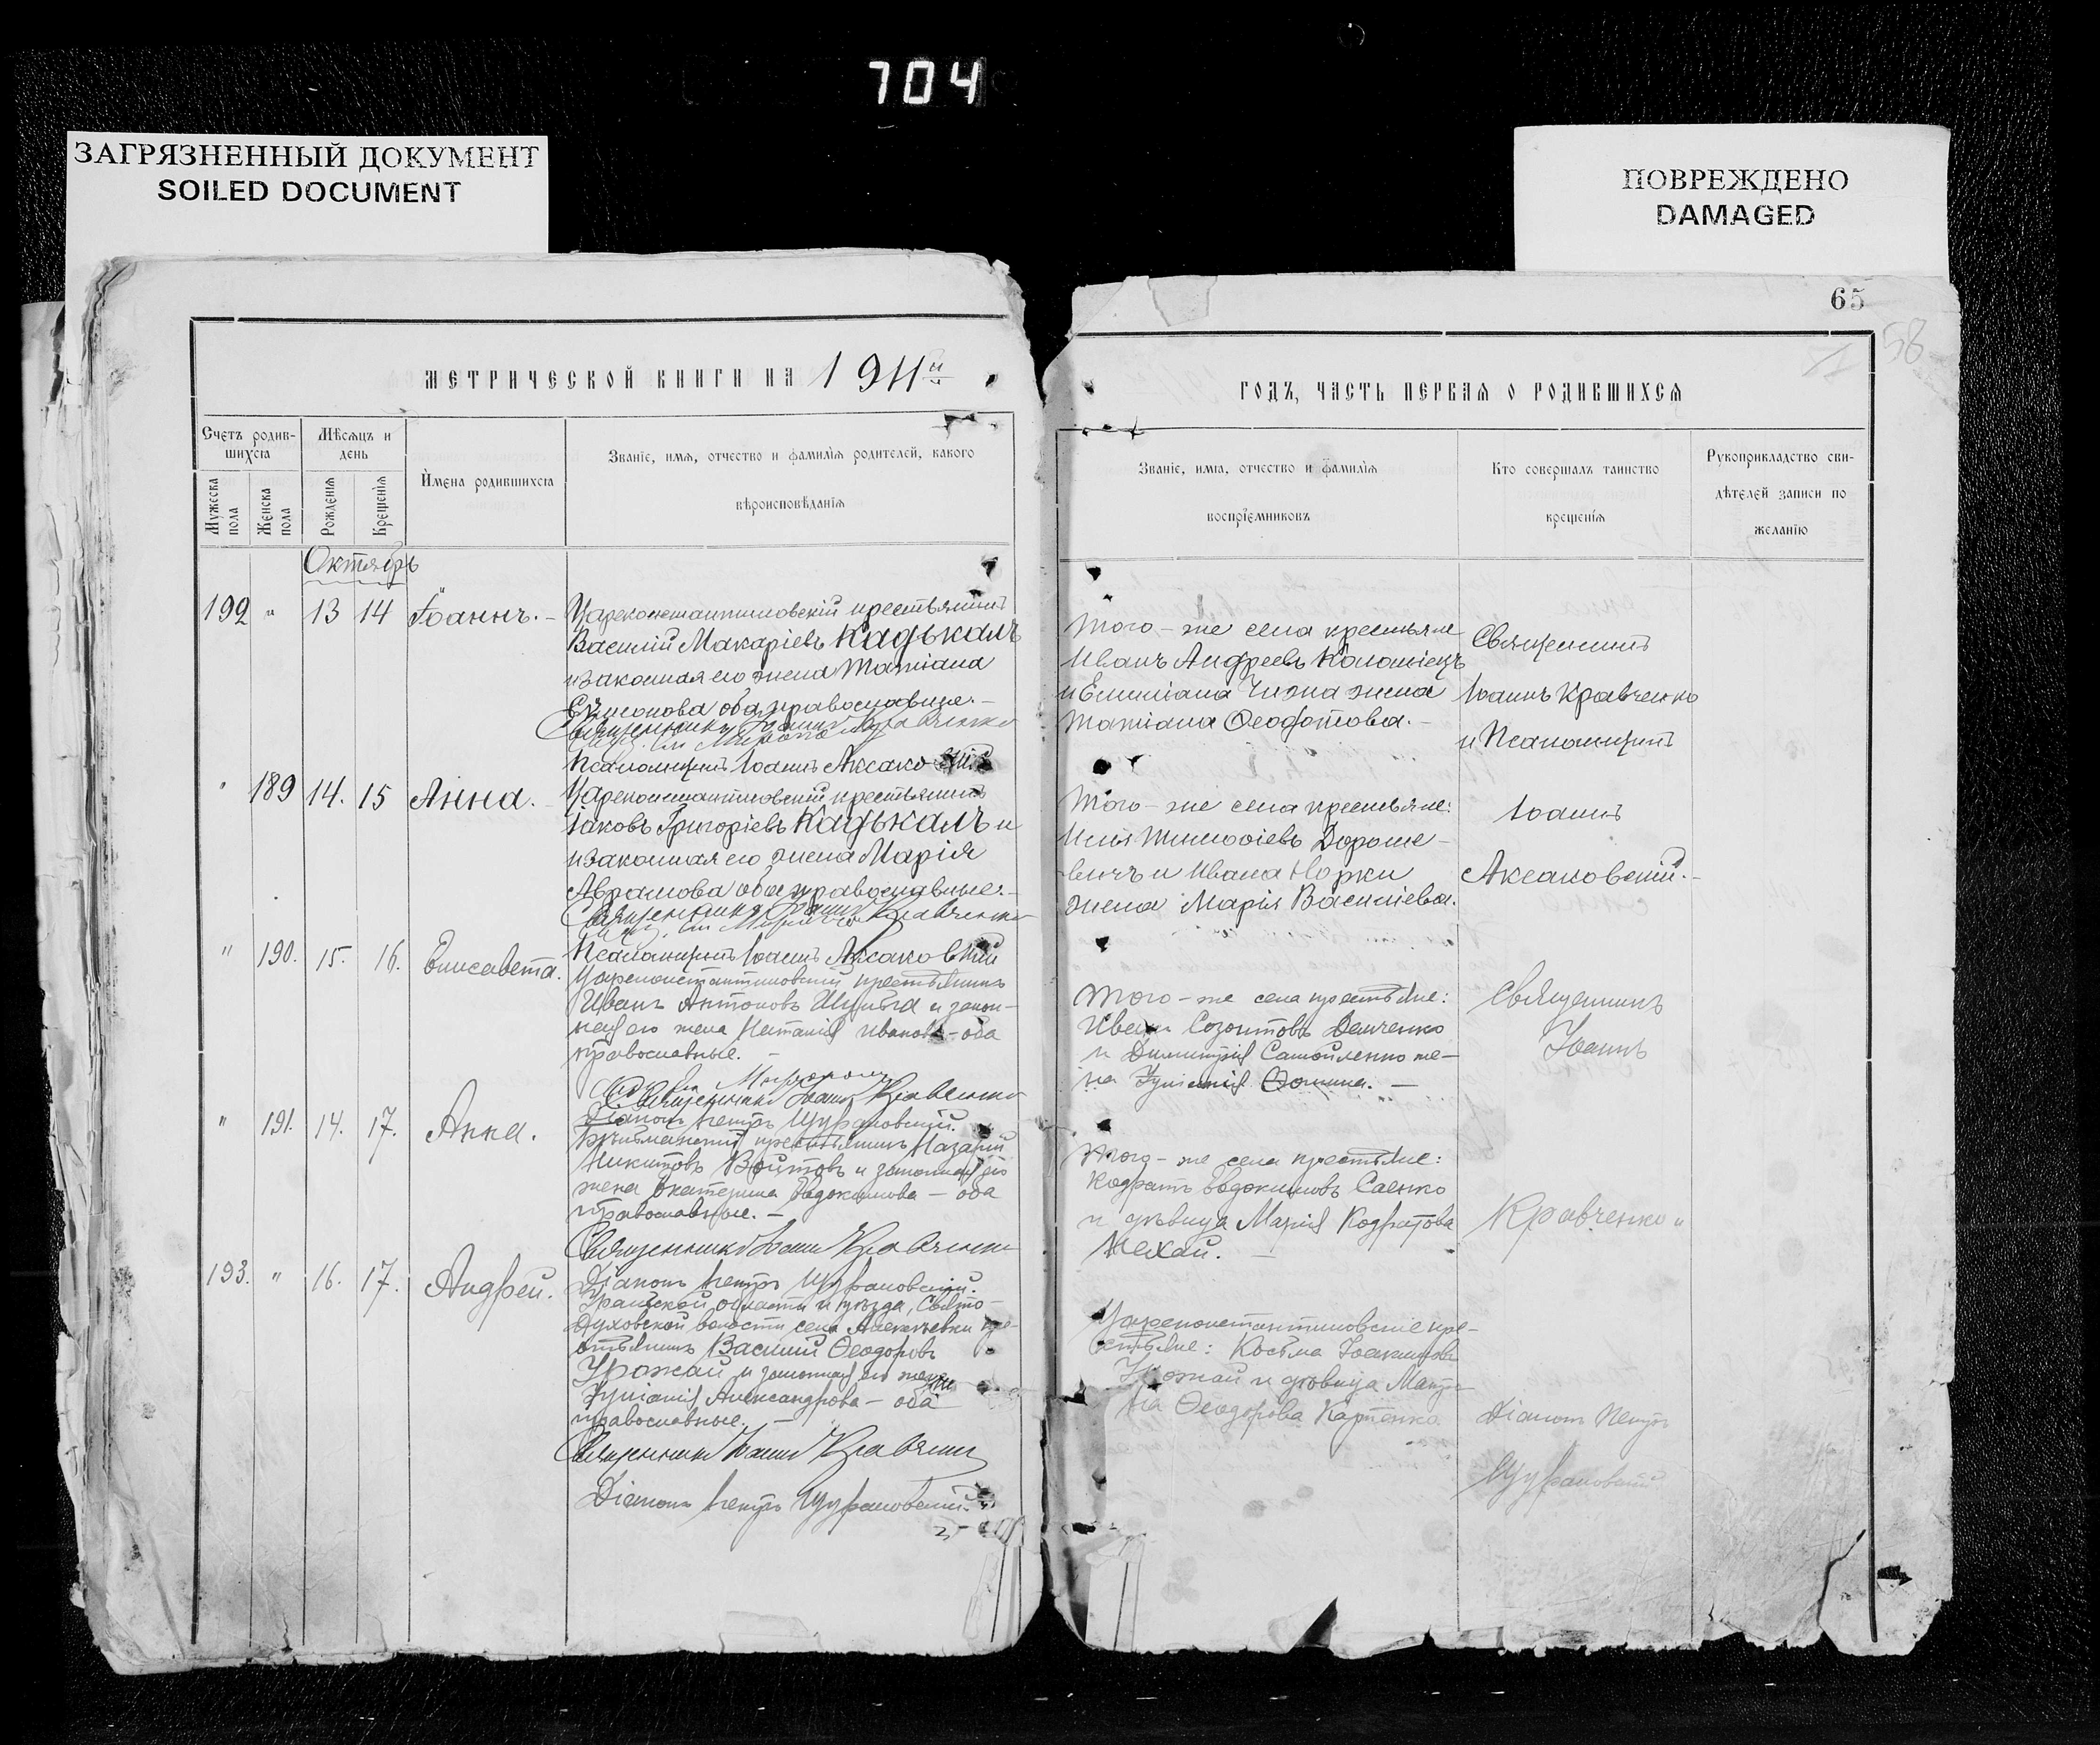 704
ЗАГРЯЗНЕННЫЙ ДОКУМЕНТ
SOILED DOCUMENT
ПОВРЕЖДЕНО
DAMAGED
65
58
МЕТРИЧЕСКОЙ КНИГИ НА 1911й
ГОДЪ, ЧАСТЬ ПЕРВАЯ О РОДИВШИХСЯ
Счетъ родив-
шихся
Мужеска пола
Женска пола
Мѣсяцъ и
день
Рожденія
Крещенія
Имена родившихся
Званіе, имя, отчество и фамилія родителей, какого
вѣроисповѣданія
Званіе, имя, отчество и фамилія
воспріемниковъ
Кто совершалъ таинство
крещенія
Рукоприкладство сви-
дѣтелей записи по
желанію
Октябрь
192 " 13 14 Іоаннъ.
Цареконстантиновскій крестьянинъ
Василій Макаріевъ Кадькалъ
и законная его жена Татіана
оба православные.
Священникъ Іоаннъ Кравченко
Псаломщикъ Іоаннъ Аксаковскій
Того-же села крестьяне
Иванъ Андреевъ Коломіецъ
и Емиліана Чижа жена
Татіана Ѳеодотова.
Священникъ
Іоаннъ Кравченко
и Псаломщикъ
" 189 14. 15 Анна.
Цареконстантиновскій крестьянинъ
Іаковъ Григоріевъ Кадькалъ и
и законная его жена Марія
Аврамова оба православные.
Священникъ Іоаннъ Кравченко
Псаломщикъ Іоаннъ Аксаковскій
Того-же села крестьяне:
Илія Тимоѳіевъ Дороше-
вичъ и Ивана Норки
жена Марія Василіева.
Іоаннъ
Аксаковскій.
" 190. 15. 16. Елисавета.
Цареконстантиновскій крестьянинъ
Иванъ Антоновъ Шульга и закон-
ная его жена Наталія Иванова - оба
православные.
Священникъ Іоаннъ Кравченко
Діаконъ Петръ Цуфановскій.
Того-же села крестьяне:
Иванъ Созонтовъ Демченко
и Димитрія Самойленко же-
на Іуліанія Ѳомина.
Священникъ
Іоаннъ
" 191. 14. 17. Анна.
крестьянинъ Назарій
Никитовъ Войтовъ и законная его
жена Екатерина Евдокимова - оба
православные.
Священникъ Іоаннъ Кравченко
Діаконъ Петръ Цуфановскій.
Того-же села крестьяне:
Кодратъ Евдокимовъ Саенко
и дѣвица Марія Кодратова
Нехай.
Кравченко и
193. " 16. 17. Андрей.
области и уѣзда, Свято-
Духовской волости села Алексѣевки кре-
стьянинъ Василій Ѳеодоровъ
Урожай и законная его жена
Іуліанія Александрова - оба
православные.
Священникъ Іоаннъ Кравченко
Діаконъ Петръ Цуфановскій.
Цареконстантиновскіе кре-
стьяне: Косьма Іоакимовъ
Урожай и дѣвица Матро-
на Ѳеодорова Карпенко.
Діаконъ Петръ
Цуфановскій